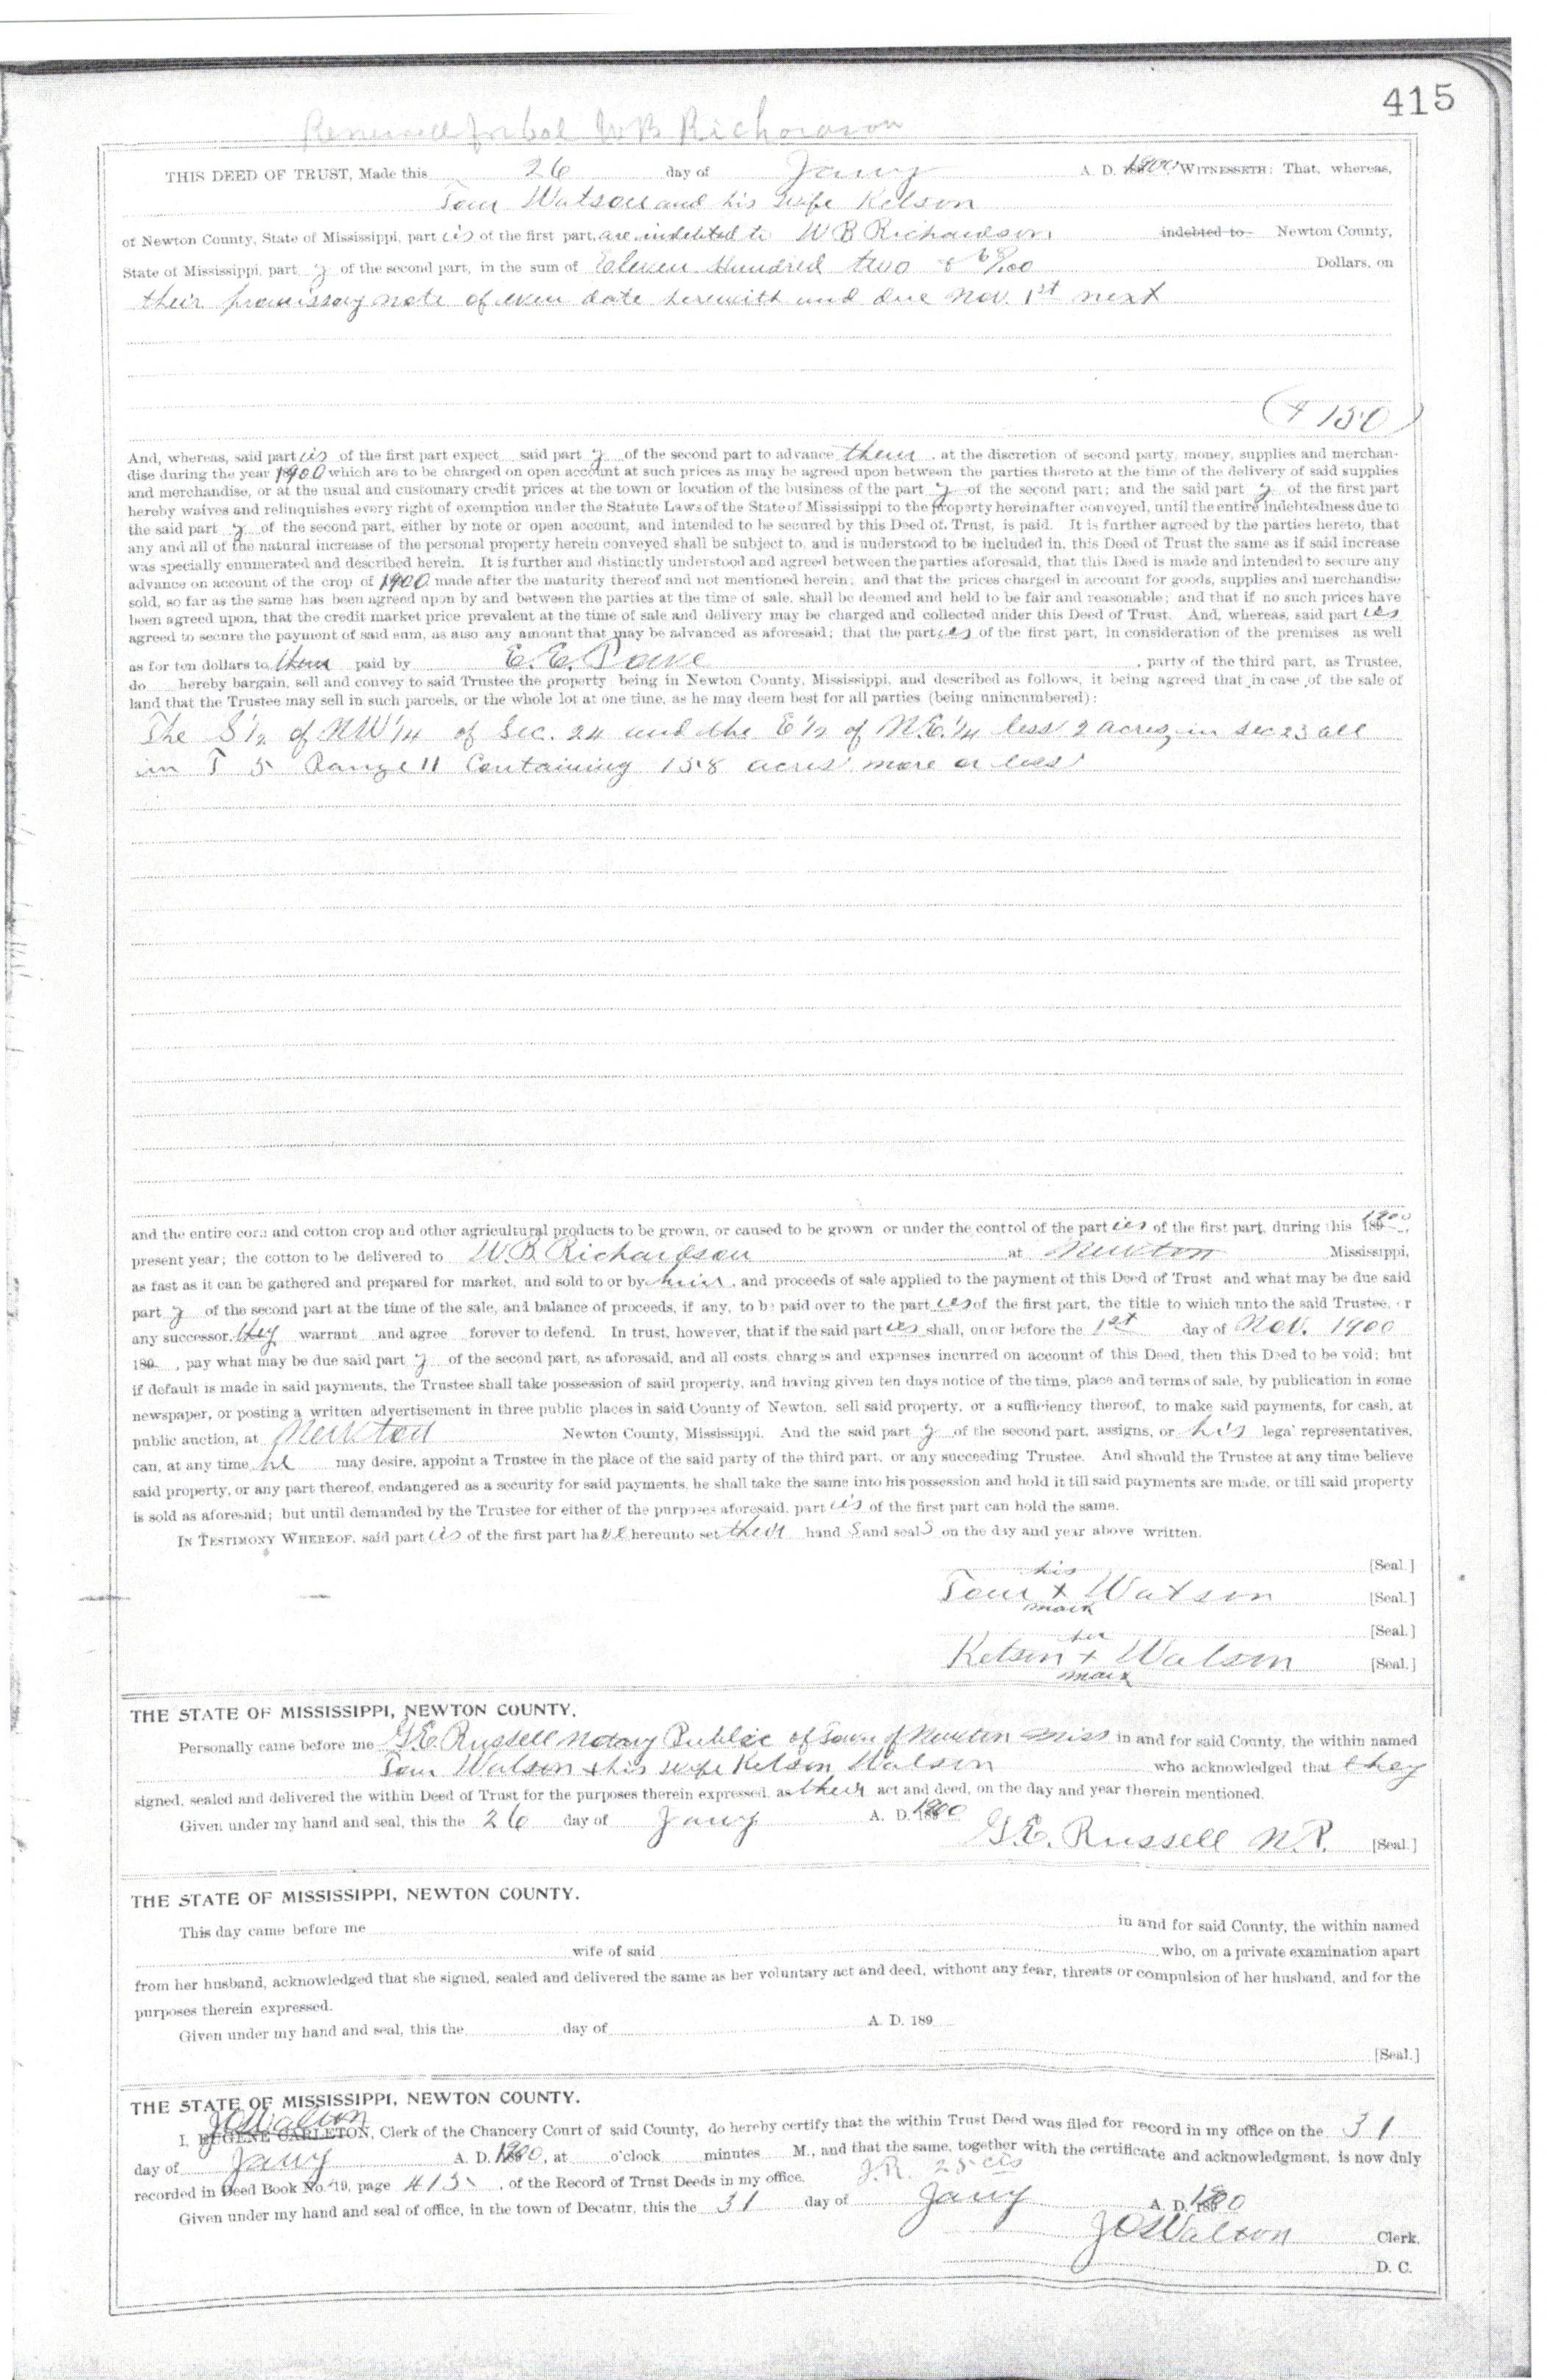 415
W B Richardson
THIS DEED OF TRUST, Made this 26 day of Jany A. D. 1900 WITNESSETH: That, whereas,
Tom Watson and his wife Kelson
of Newton County, State of Mississippi, part ies of the first part, are indebted to W B Richardson, indebted to Newton County,
State of Mississippi, part y of the second part, in the sum of Eleven Hundred two & 68/100 Dollars, on
their promissory note of even date herewith and due Nov. 1st next
150
And, whereas, said part ies of the first part expect said part y of the second part to advance them, at the discretion of second party, money, supplies and merchan-
dise during the year 1900 which are to be charged on open account at such prices as may be agreed upon between the parties thereto at the time of the delivery of said supplies
and merchandise, or at the usual and customary credit prices at the town or location of the business of the part y of the second part; and the said part y of the first part
hereby waives and relinquishes every right of exemption under the Statute Laws of the State of Mississippi to the property hereinafter conveyed, until the entire indebtedness due to
the said part y of the second part, either by note or open account, and intended to be secured by this Deed of Trust, is paid. It is further agreed by the parties hereto, that
any and all of the natural increase of the personal property herein conveyed shall be subject to, and is understood to be included in, this Deed of Trust the same as if said increase
was specially enumerated and described herein. It is further and distinctly understood and agreed between the parties aforesaid, that this Deed is made and intended to secure any
advance on account of the crop of 1900 made after the maturity thereof and not mentioned herein; and that the prices charged in account for goods, supplies and merchandise
sold, so far as the same has been agreed upon by and between the parties at the time of sale, shall be deemed and held to be fair and reasonable; and that if no such prices have
been agreed upon, that the credit market price prevalent at the time of sale and delivery may be charged and collected under this Deed of Trust. And, whereas, said part ies
agreed to secure the payment of said sum, as also any amount that may be advanced as aforesaid; that the part ies of the first part, in consideration of the premises as well
as for ten dollars to them paid by E. E. Powe, party of the third part, as Trustee,
do hereby bargain, sell and convey to said Trustee the property being in Newton County, Mississippi, and described as follows, it being agreed that in case of the sale of
land that the Trustee may sell in such parcels, or the whole lot at one time, as he may deem best for all parties (being unincumbered):
The S 1/2 of NW 1/4 of Sec. 24 and the E 1/2 of N.E. 1/4 less 2 acres, in sec 23 all
in T 5 Range 11 Containing 158 acres more or less
and the entire corn and cotton crop and other agricultural products to be grown, or caused to be grown or under the control of the part ies of the first part, during this 1900
present year; the cotton to be delivered to W. B. Richardson at Newton Mississippi,
as fast as it can be gathered and prepared for market, and sold to or by him, and proceeds of sale applied to the payment of this Deed of Trust and what may be due said
part y of the second part at the time of the sale, and balance of proceeds, if any, to be paid over to the part ies of the first part, the title to which unto the said Trustee, or
any successor, they warrant and agree forever to defend. In trust, however, that if the said part ies shall, on or before the 1st day of Nov. 1900
189 , pay what may be due said part y of the second part, as aforesaid, and all costs, charges and expenses incurred on account of this Deed, then this Deed to be void; but
if default is made in said payments, the Trustee shall take possession of said property, and having given ten days notice of the time, place and terms of sale, by publication in some
newspaper, or posting a written advertisement in three public places in said County of Newton, sell said property, or a sufficiency thereof, to make said payments, for cash, at
public auction, at Newton Newton County, Mississippi. And the said part y of the second part, assigns, or his legal representatives,
can, at any time he may desire, appoint a Trustee in the place of the said party of the third part, or any succeeding Trustee. And should the Trustee at any time believe
said property, or any part thereof, endangered as a security for said payments, he shall take the same into his possession and hold it till said payments are made, or till said property
is sold as aforesaid; but until demanded by the Trustee for either of the purposes aforesaid, part ies of the first part can hold the same.
IN TESTIMONY WHEREOF, said part ies of the first part have hereunto set their hand s and seal s on the day and year above written.
his [Seal.]
Tom x Watson [Seal.]
mark
her [Seal.]
Kelson x Watson [Seal.]
mark
THE STATE OF MISSISSIPPI, NEWTON COUNTY.
Personally came before me G.E. Russell Notary Public of Town of Newton Miss in and for said County, the within named
Tom Watson & his wife Kelson Watson who acknowledged that they
signed, sealed and delivered the within Deed of Trust for the purposes therein expressed, as their act and deed, on the day and year therein mentioned.
Given under my hand and seal, this the 26 day of Jany A. D. 1900
G.E. Russell N.P. [Seal.]
THE STATE OF MISSISSIPPI, NEWTON COUNTY.
This day came before me in and for said County, the within named
wife of said who, on a private examination apart
from her husband, acknowledged that she signed, sealed and delivered the same as her voluntary act and deed, without any fear, threats or compulsion of her husband, and for the
purposes therein expressed.
Given under my hand and seal, this the day of A. D. 189
[Seal.]
THE STATE OF MISSISSIPPI, NEWTON COUNTY.
JO Walton
I, EUGENE CARLETON, Clerk of the Chancery Court of said County, do hereby certify that the within Trust Deed was filed for record in my office on the 31
day of Jany A. D. 1900, at o'clock minutes M., and that the same, together with the certificate and acknowledgment, is now duly
recorded in Deed Book No. 19, page 415, of the Record of Trust Deeds in my office. J.R. 25 cts
Given under my hand and seal of office, in the town of Decatur, this the 31 day of Jany A. D. 1900
JO Walton Clerk,
D. C.